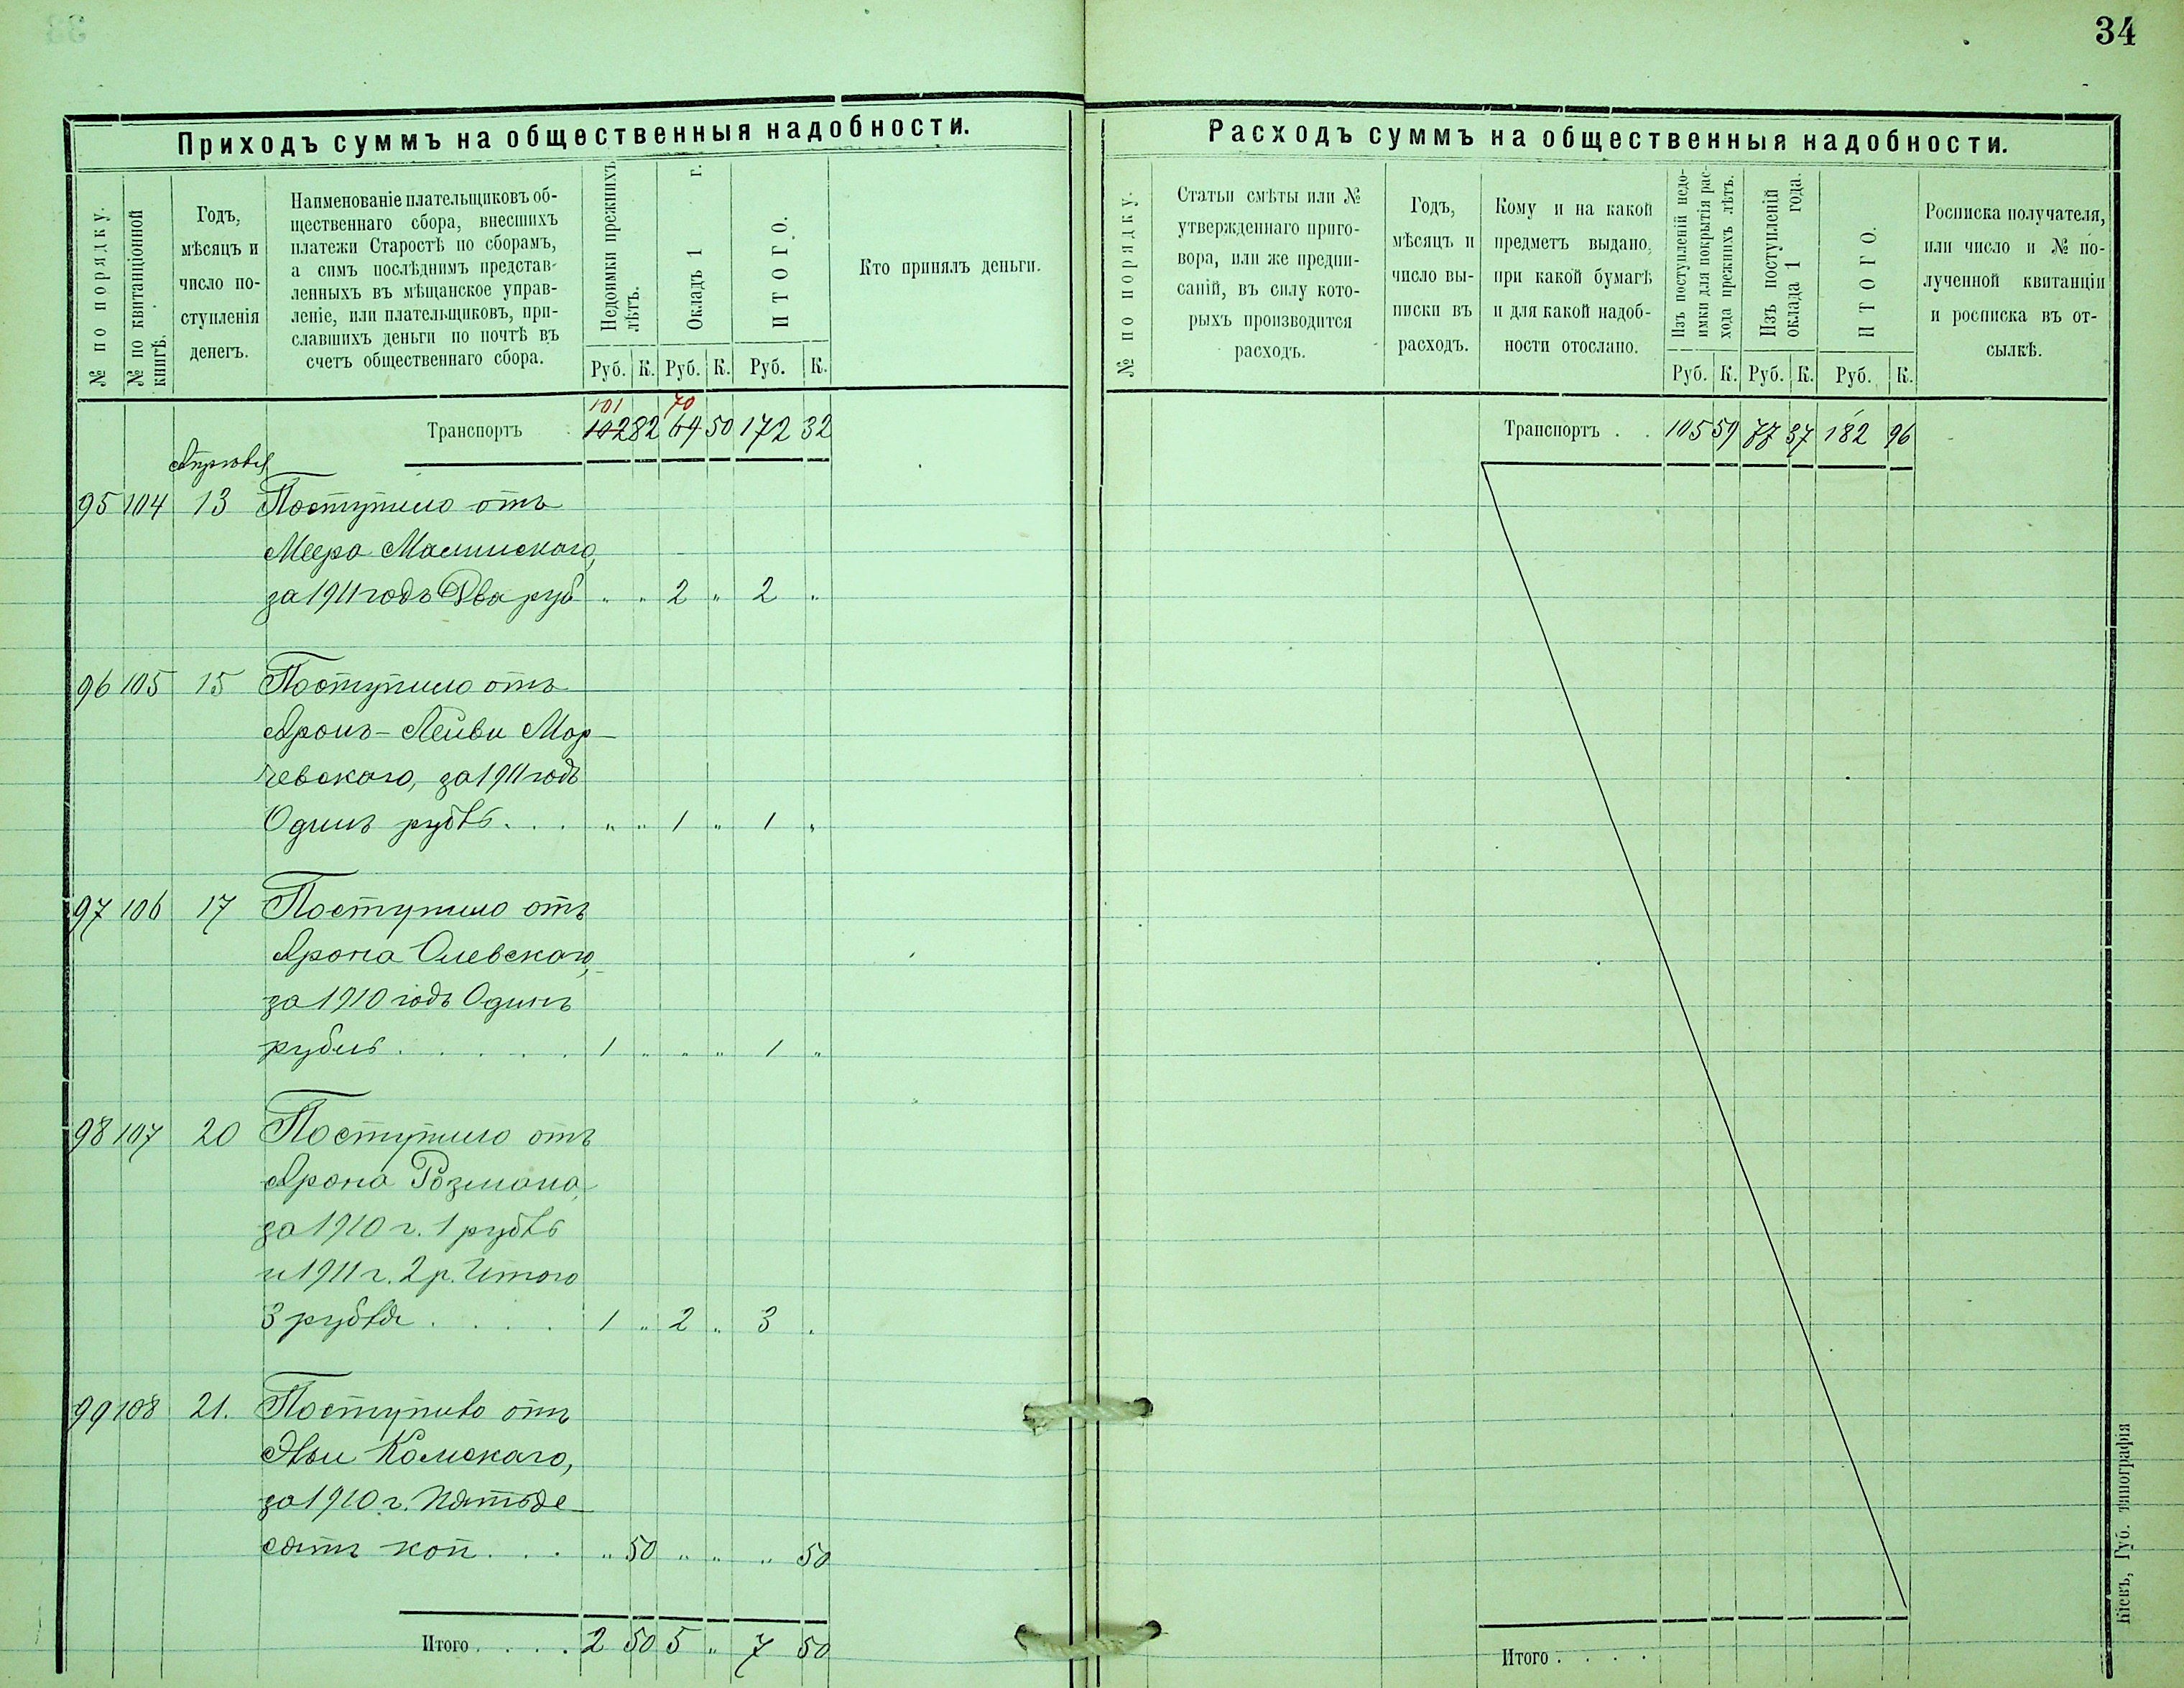 34
Приходъ суммъ на общественныя надобности.
№ по порядку.
№ по квитанціонной
книгѣ.
Годъ,
мѣсяцъ и
число по-
ступленія
денегъ.
Наименованіе плательщиковъ об-
щественнаго сбора, внесшихъ
платежи Старостѣ по сборамъ,
а симъ послѣднимъ представ-
ленныхъ въ мѣщанское управ-
леніе, или плательщиковъ, при-
славшихъ деньги по почтѣ въ
счетъ общественнаго сбора.
Недоимки прежнихъ
лѣтъ.
Окладъ 1 г.
ИТОГО.
Кто принялъ деньги.
Руб. К. Руб. К. Руб. К.
101 70
Транспортъ 102 82 69 50 172 32
Апрѣля
95 104 13 Поступило отъ
Меера
за 1911 годъ Два руб " " 2 " 2 "
96 105 15 Поступило отъ
Аронъ-Лейви Мор-
чевскаго, за 1911 годъ
Одинъ рубль . . . " " 1 " 1 "
97 106 17 Поступило отъ
Арона Олевскаго,
за 1910 годъ Одинъ
рубль . . . . . . 1 " " " 1 "
98 107 20 Поступило отъ
Арона Розмана,
за 1910 г. 1 рубль
и 1911 г. 2 р. Итого
3 рубля . . . . 1 " 2 " 3 "
99 108 21. Поступило отъ
Эльи Камскаго,
за 1910 г. Пятьде-
сятъ коп . . . " 50 " " " 50
Итого . . . . 2 50 5 " 7 50
Расходъ суммъ на общественныя надобности.
№ по порядку.
Статьи смѣты или №
утвержденнаго приго-
вора, или же предпи-
саній, въ силу кото-
рыхъ производится
расходъ.
Годъ,
мѣсяцъ и
число вы-
писки въ
расходъ.
Кому и на какой
предметъ выдано,
при какой бумагѣ
и для какой надоб-
ности отослано.
Изъ поступленій недо-
имки для покрытія рас-
хода прежнихъ лѣтъ.
Изъ поступленій
оклада 1 года.
ИТОГО.
Росписка получателя,
или число и № по-
лученной квитанціи
и росписка въ от-
сылкѣ.
Руб. К. Руб. К. Руб. К.
Транспортъ . . 105 59 77 37 182 96
Итого . . . .
Кіевъ, Губ. типографія